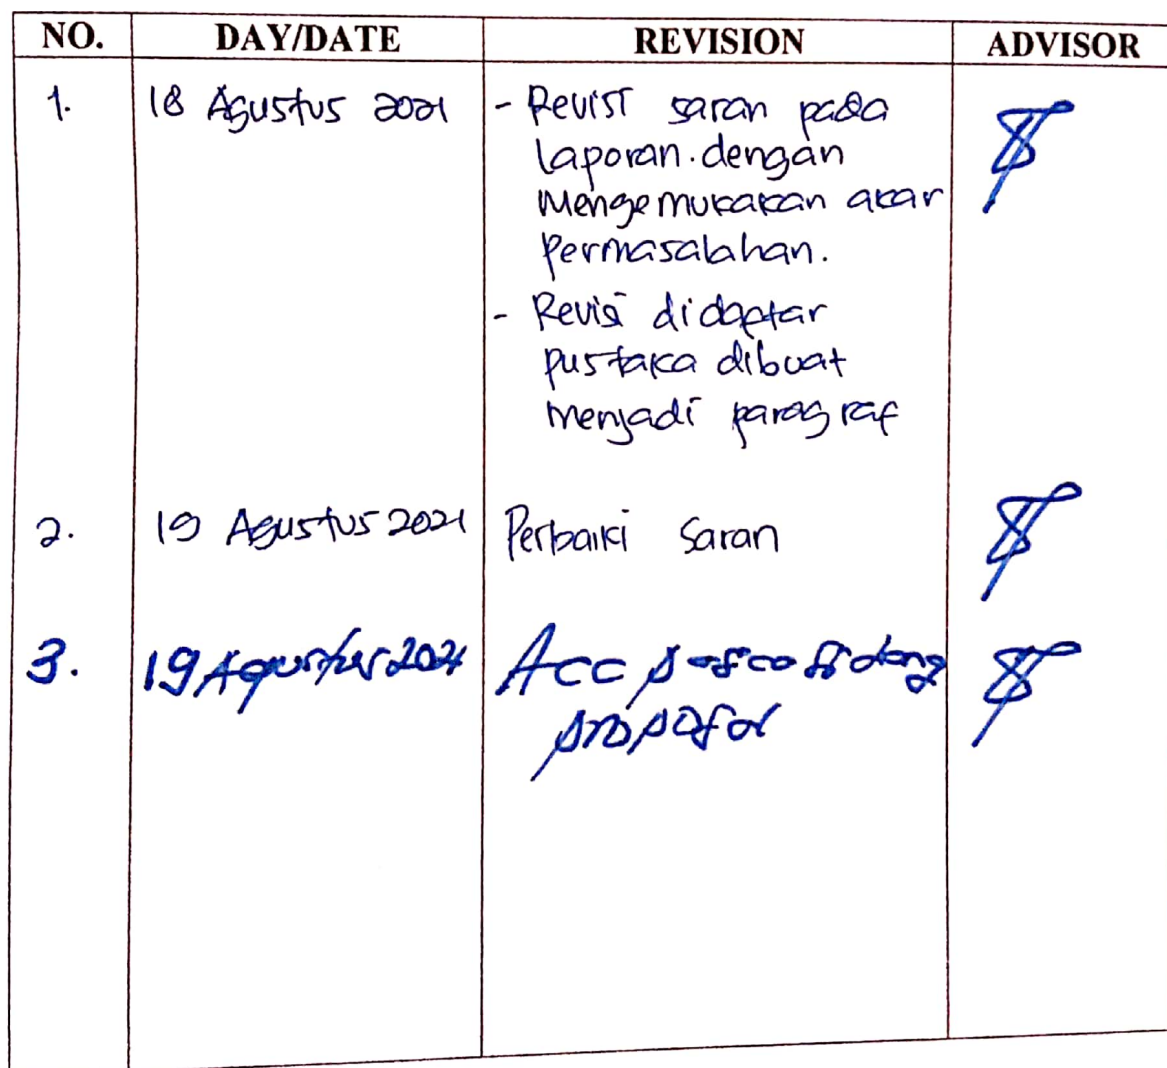 NO. DAY/DATE REVISION ADVISOR
1. 18 Agustus 2021 - Revisi saran pada
laporan. dengan
Mengemukakan akar
Permasalahan.
- Revisi didaptar
pustaka dibuat
menjadi paragraf
2. 19 Agustus 2021 Perbaiki Saran
3. 19 Agustus 2021 Acc pasca sidang
proposal